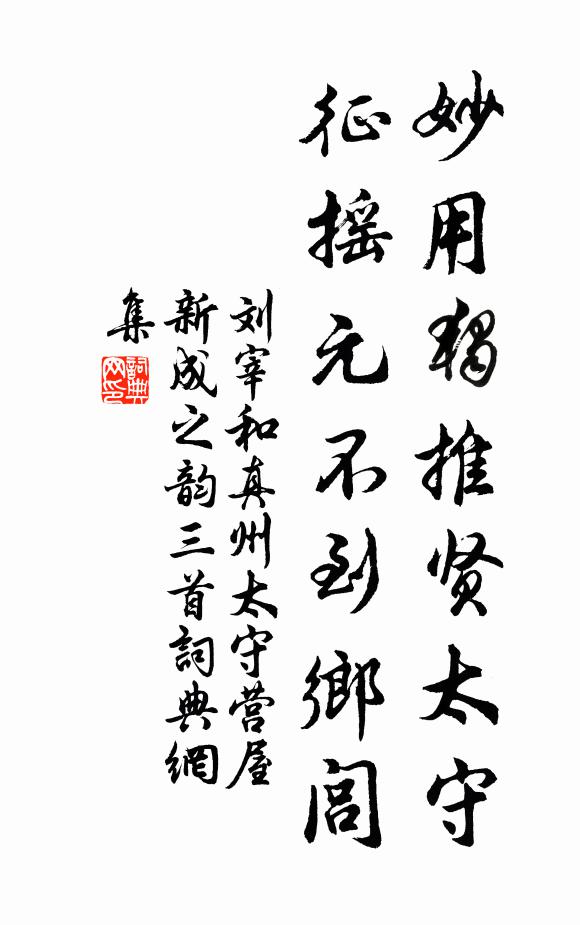 妙用獨推贤太守
征摇元不到鄉闾
刘宰和真州太守营屋
新成之韵三首詞典網
集
詞典
网印